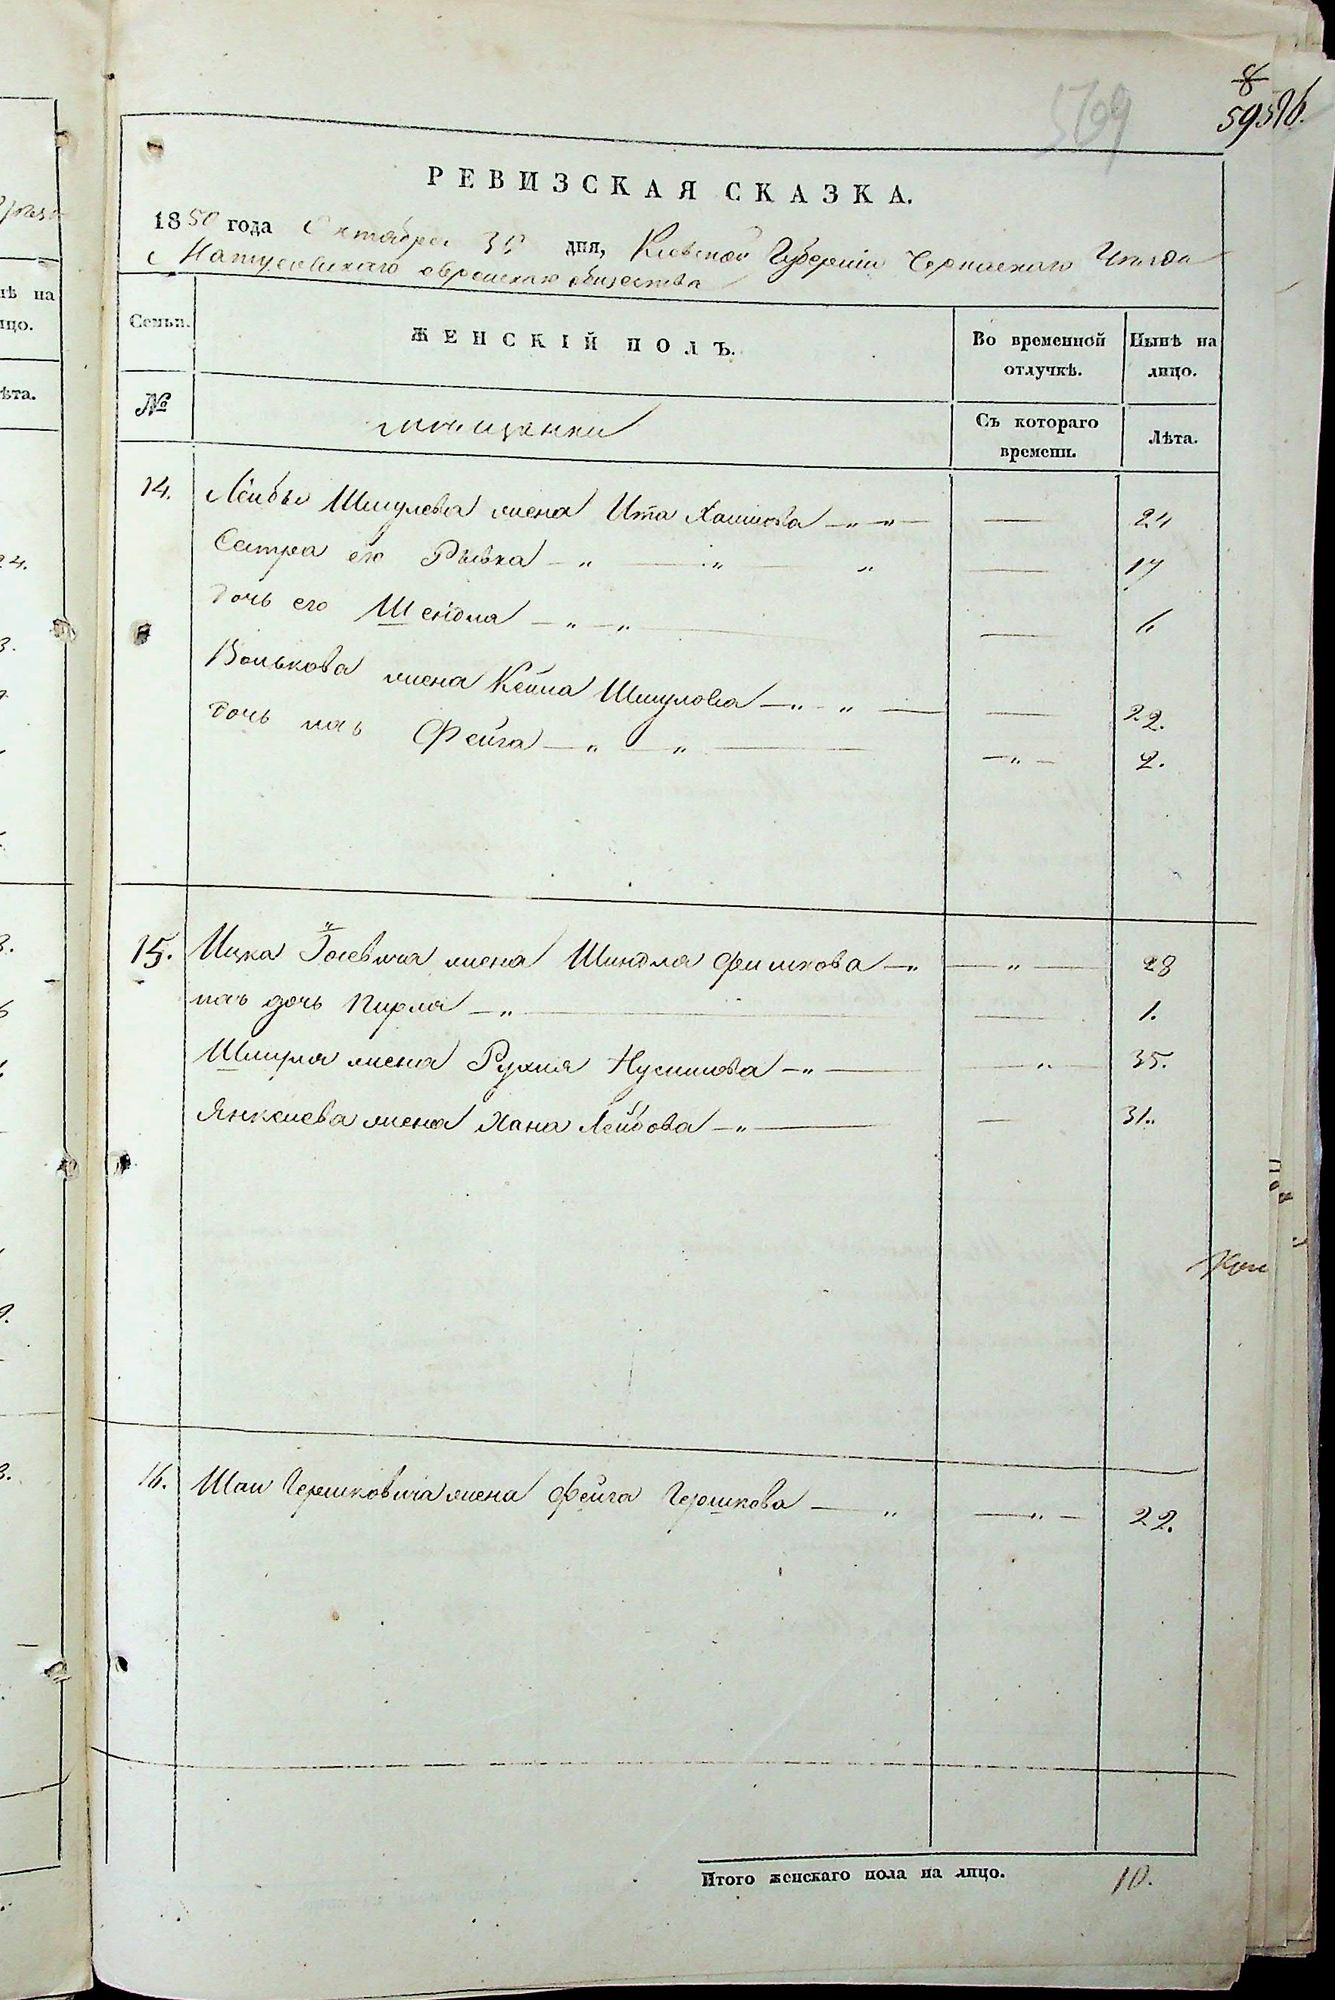 8
59 596.
569
РЕВИЗСКАЯ СКАЗКА.
1850 года Октября 30 дня, Киевской Губернии Черкаскаго Уезда
Матусовскаго еврейскаго общества
Семьи. ЖЕНСКІЙ ПОЛЪ. Во временной отлучкѣ. Нынѣ на лицо.
№ мещанки Съ котораго времени. Лѣта.
14. Лейбы Шмулева жена Ита Хаимова — „ — 24
Сестра его Рывка — „ — „ — „ — 17
дочь его Шейдля — „ — „ — 1.
Волькова жена Кейла Шмулова — „ — „ — 22.
дочь ихъ Фейга — „ — „ — „ — 2.
15. Ицка Іосевича жена Шиндля Фишкова — „ — „ — 28
ихъ дочь Пирля — „ — 1.
Шмуля жена Рухля Нусимова — „ — „ — 35.
Янкелева жена Хана Лейбова — „ — 31.
16. Шаи Гершковича жена Фейга Гершкова — „ — „ — 22.
Итого женскаго пола на лицо. 10.